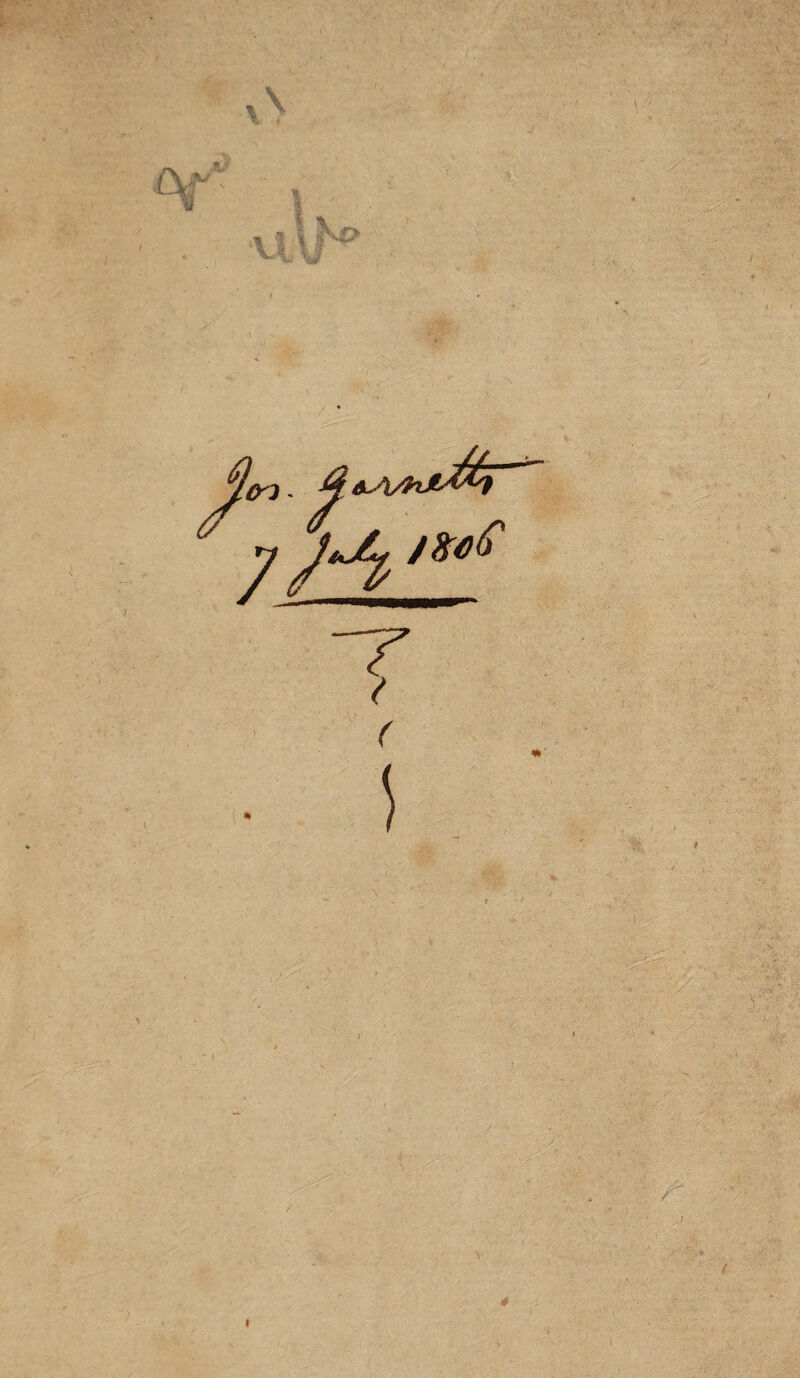 Jos. Garnett
7 July 1806